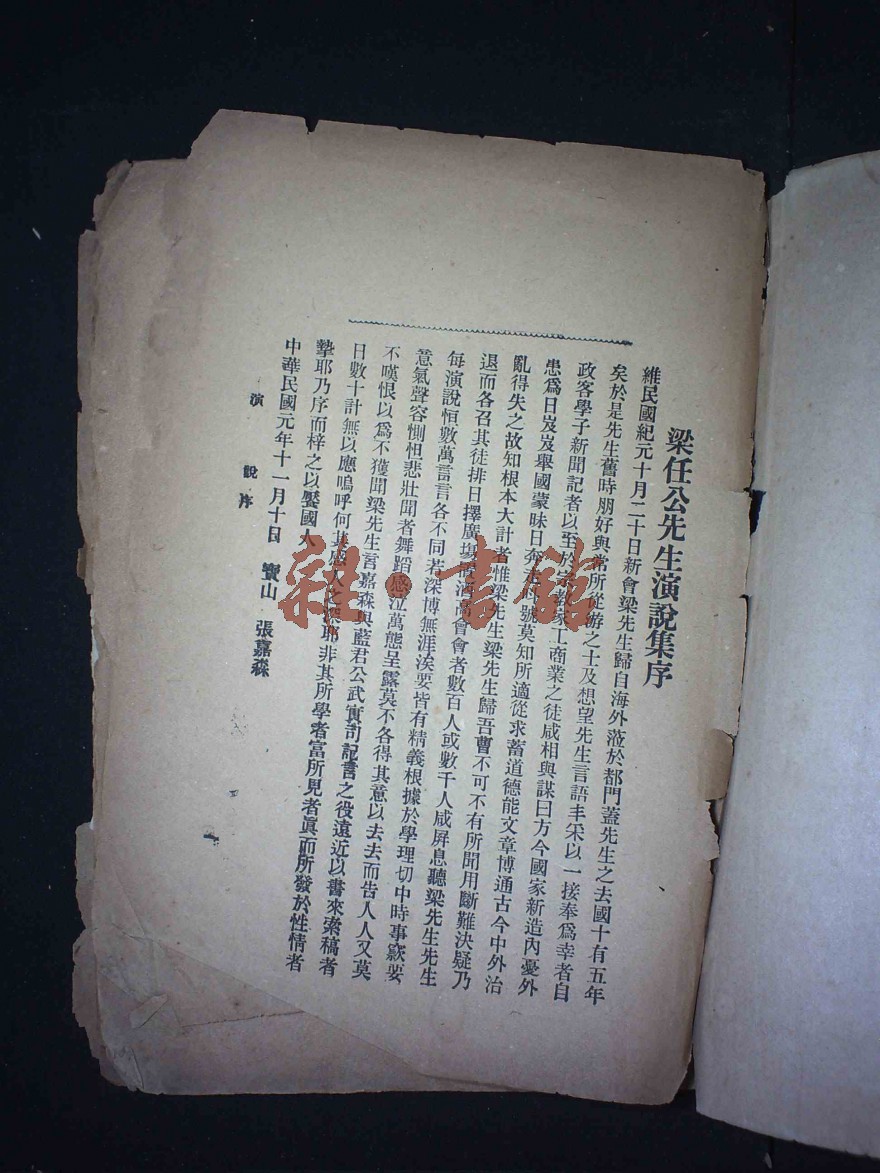 梁任公先生演說集序
維民國紀元十月二十日新會梁先生歸自海外蒞於都門蓋先生之去國十有五年
矣於是先生舊時朋好與常所從游之士及想望先生言語丰采以一接奉爲幸者自
政客學子新聞記者以至於宗教家工商業之徒咸相與謀曰方今國家新造內憂外
患爲日岌岌舉國蒙昧日奔走呼號莫知所適從求蓄道德能文章博通古今中外治
亂得失之故知根本大計者惟梁先生梁先生歸吾曹不可不有所聞用斷難決疑乃
退而各召其徒排日擇廣場置酒高會會者數百人或數千人咸屏息聽梁先生先生
每演說恒數萬言言各不同若深博無涯涘要皆有精義根據於學理切中時事窾要
意氣聲容惻怛悲壯聞者舞蹈感泣萬態呈露莫不各得其意以去去而告人人又莫
不嘆恨以爲不獲聞梁先生言嘉森與藍君公武實司記言之役遠近以書來索稿者
日數十計無以應嗚呼何其感人之深耶非其所學者富所見者眞而所發於性情者
摯耶乃序而梓之以饜國人
中華民國元年十一月十日 寶山 張嘉森
演說序
雜·書館